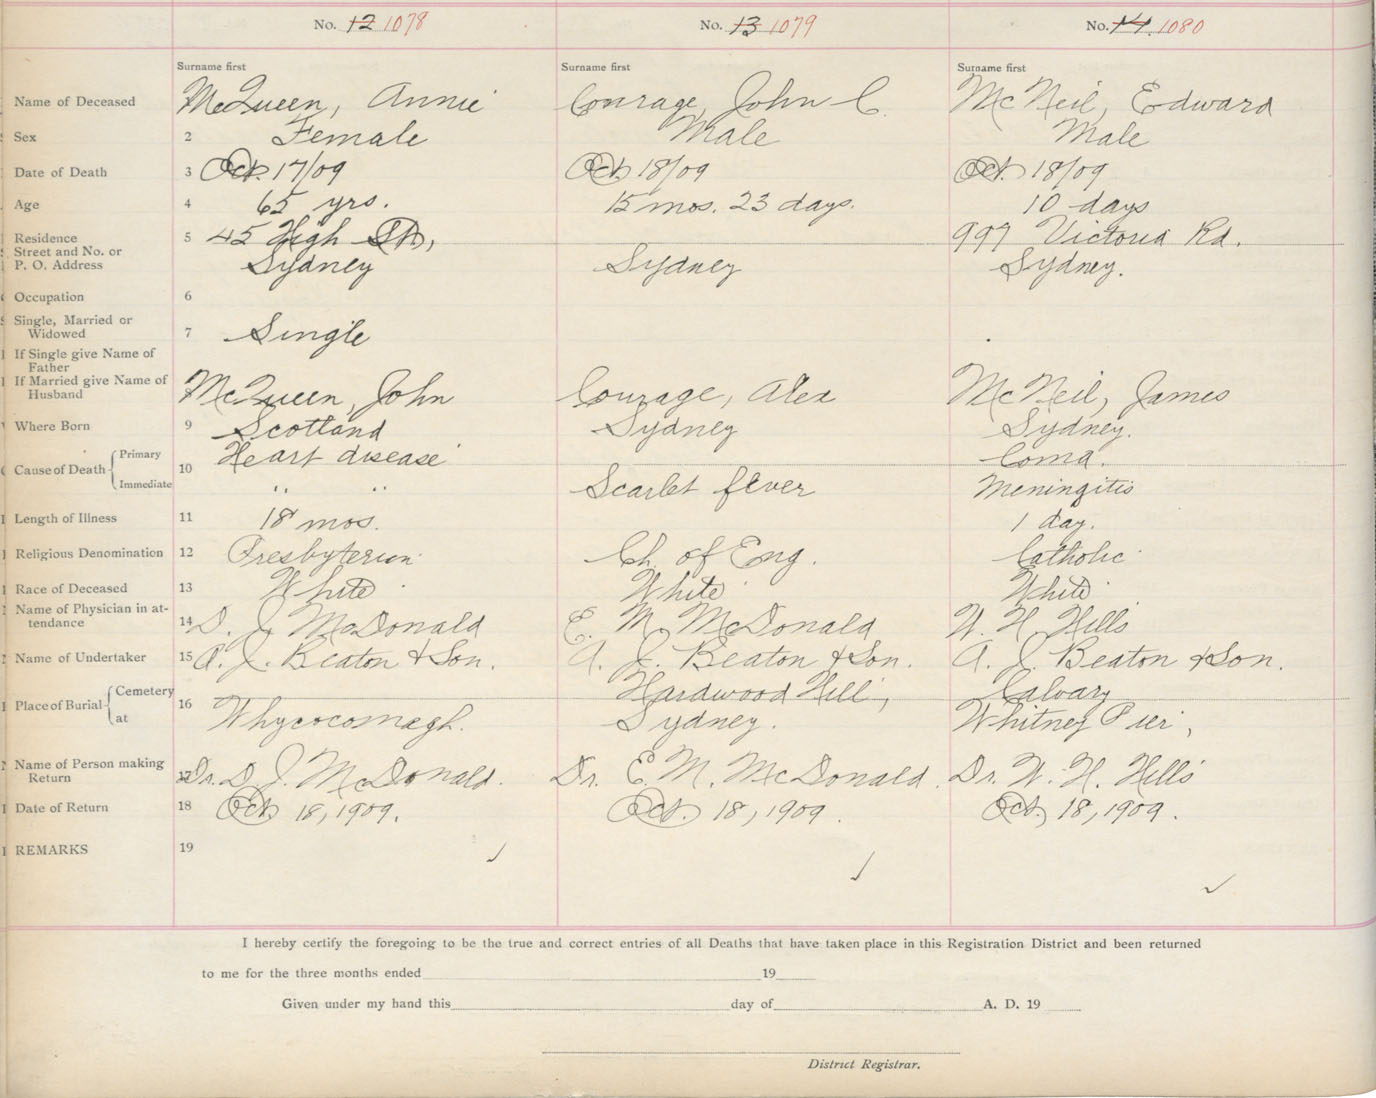 No. 12 1078 No. 13 1079 No. 14. 1080
Surname first Surname first Surname first
Name of Deceased McQueen, Annie Courage, John C. McNeil, Edward
Sex 2 Female Male Male
Date of Death 3 Oct. 17/09 Oct. 18/09 Oct. 18/09
Age 4 65 yrs. 15 mos. 23 days. 10 days
Residence 5 45 High St., 997 Victoria Rd.
Street and No. or
P. O. Address Sydney Sydney Sydney.
Occupation 6
Single, Married or
Widowed 7 Single
If Single give Name of
Father
If Married give Name of
Husband 8 McQueen, John Courage, Alex McNeil, James
Where Born 9 Scotland Sydney Sydney.
Cause of Death 10 Primary Heart disease Coma.
Immediate " " Scarlet fever Meningitis
Length of Illness 11 18 mos. 1 day.
Religious Denomination 12 Presbyterian Ch. of Eng. Catholic
Race of Deceased 13 White White White
Name of Physician in at-
tendance 14 D. J. McDonald E. M. McDonald W. H. Hills
Name of Undertaker 15 A. J. Beaton & Son. A. J. Beaton & Son. A. J. Beaton & Son.
Place of Burial 16 Cemetery Hardwood Hill, Calvary
at Whycocomagh. Sydney. Whitney Pier,
Name of Person making
Return 17 Dr. D. J. McDonald. Dr. E. M. McDonald. Dr. W. H. Hills
Date of Return 18 Oct. 18, 1909. Oct. 18, 1909. Oct. 18, 1909.
REMARKS 19
I hereby certify the foregoing to be the true and correct entries of all Deaths that have taken place in this Registration District and been returned
to me for the three months ended 19
Given under my hand this day of A. D. 19
District Registrar.